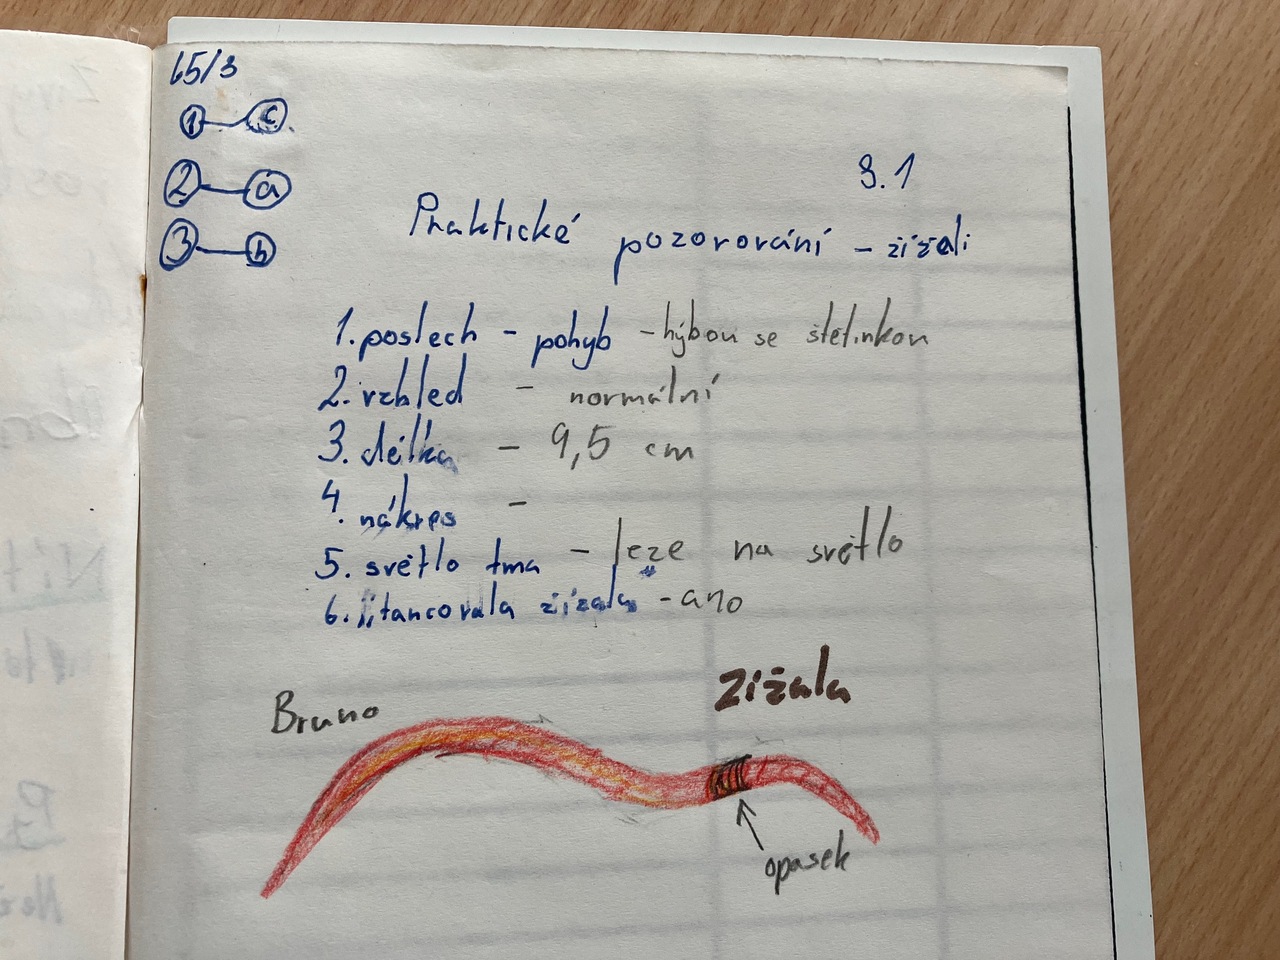 65/3
1 - c
2 - a
3 - b
3.1
Praktické pozorování - žížali
1. poslech - pohyb - hýbou se štětinkou
2. vzhled - normální
3. délka - 9,5 cm
4. nákres -
5. světlo tma - leze na světlo
6. tancovala žížala - ano
Žížala
Bruno
opasek